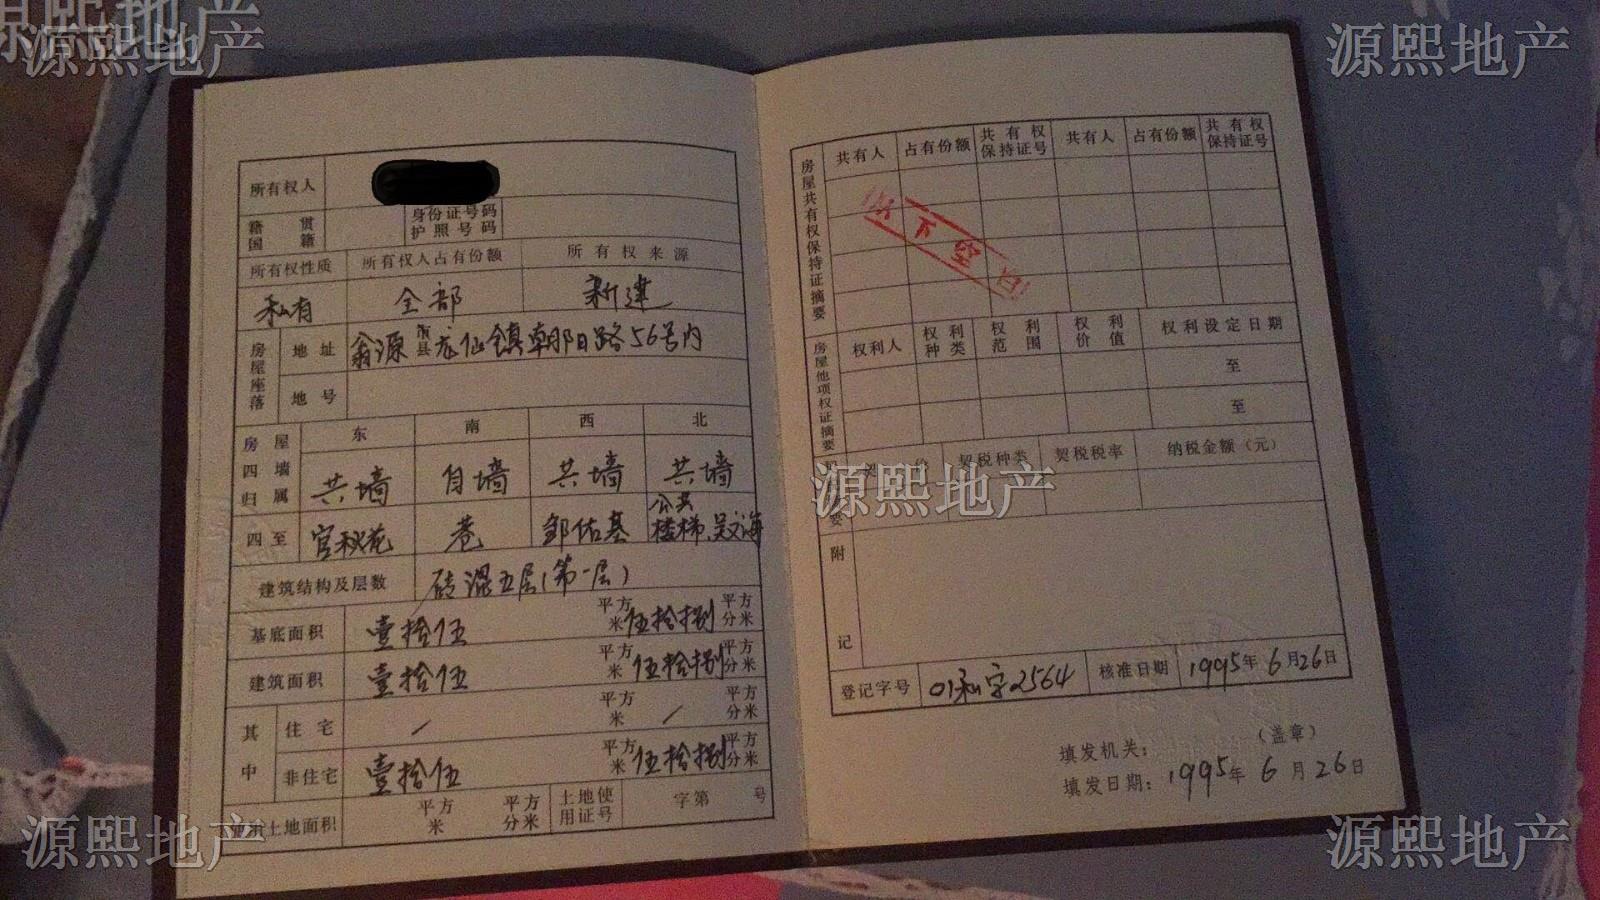 源熙地产
源熙地产
源熙地产
所有权人
籍贯
国籍
身份证号码
护照号码
所有权性质 所有权人占有份额 所有权来源
私有 全部 新建
房屋座落 地址 翁源市县龙仙镇朝阳路56号内
地号
房屋四墙归属 东 南 西 北
共墙 自墙 共墙 共墙
四至 官秋花 巷 邹佑基 公共楼梯、吴文海
建筑结构及层数 砖混五层(第一层)
基底面积 壹拾伍 平方米 伍拾捌 平方分米
建筑面积 壹拾伍 平方米 伍拾捌 平方分米
其中 住宅 / 平方米 / 平方分米
非住宅 壹拾伍 平方米 伍拾捌 平方分米
土地面积 平方米 平方分米 土地使用证号 字第 号
房屋共有权保持证摘要 共有人 占有份额 共有权保持证号 共有人 占有份额 共有权保持证号
以下空白
房屋他项权证摘要 权利人 权利种类 权利范围 权利价值 权利设定日期
至
至
价 契税种类 契税税率 纳税金额(元)
要
源熙地产
附记
登记字号 01私字2564 核准日期 1995年6月26日
填发机关: (盖章)
填发日期: 1995年6月26日
源熙地产
源熙地产